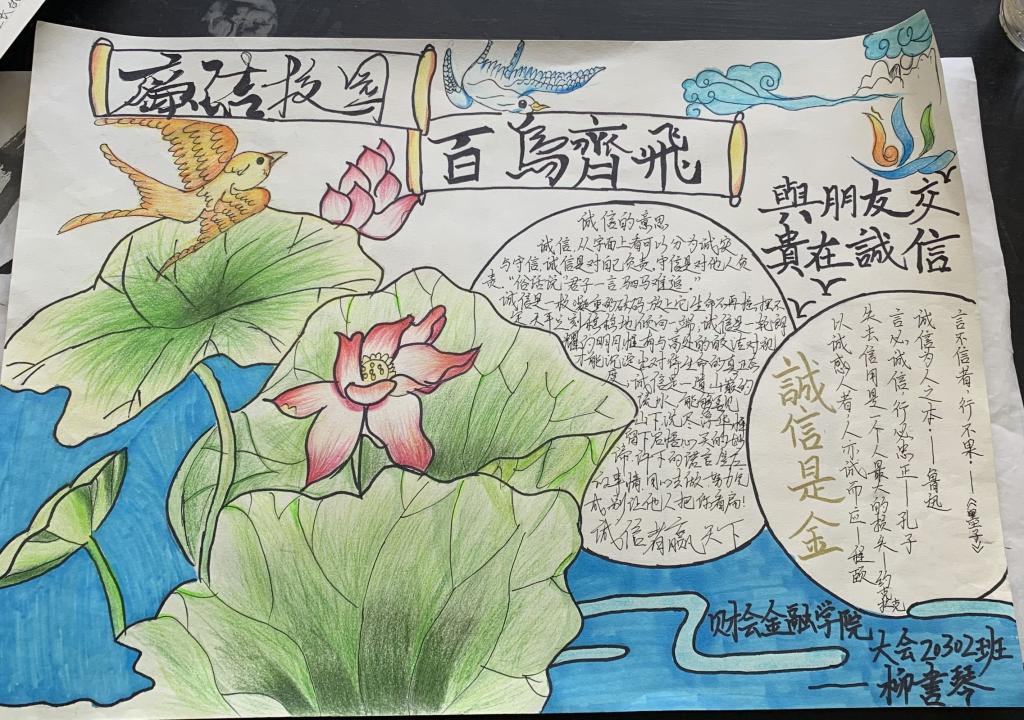 廉洁校园
百鳥齊飛
與朋友交
貴在誠信
诚信的意思
诚信,从字面上看可以分为诚实
与守信,诚信是对自己负责,守信是对他人负
责。"俗话说"君子一言驷马难追。"
诚信是一枚凝重的砝码,放上它生命不再摇摆不
天平立刻稳稳地倾向一端,诚信是一轮明
的明月,惟有与高处的皎洁对视
才能沉淀出对待生命的真正
诚信是一道山巅的
流水,能够
山下洗尽浮华
留下启悟心灵的
许下的诺言是
事情,用心去做,努力完
成,别让他人把你看扁!
诚信者赢天下
誠信是金
言不信者,行不果。——《墨子》
诚信为人之本。——鲁迅
言必诚信,行必忠正——孔子
失去信用是一个人最大的损失——约
以诚感人者,人亦诚而应——程颐
财会金融学院
大会20302班
——柳書琴